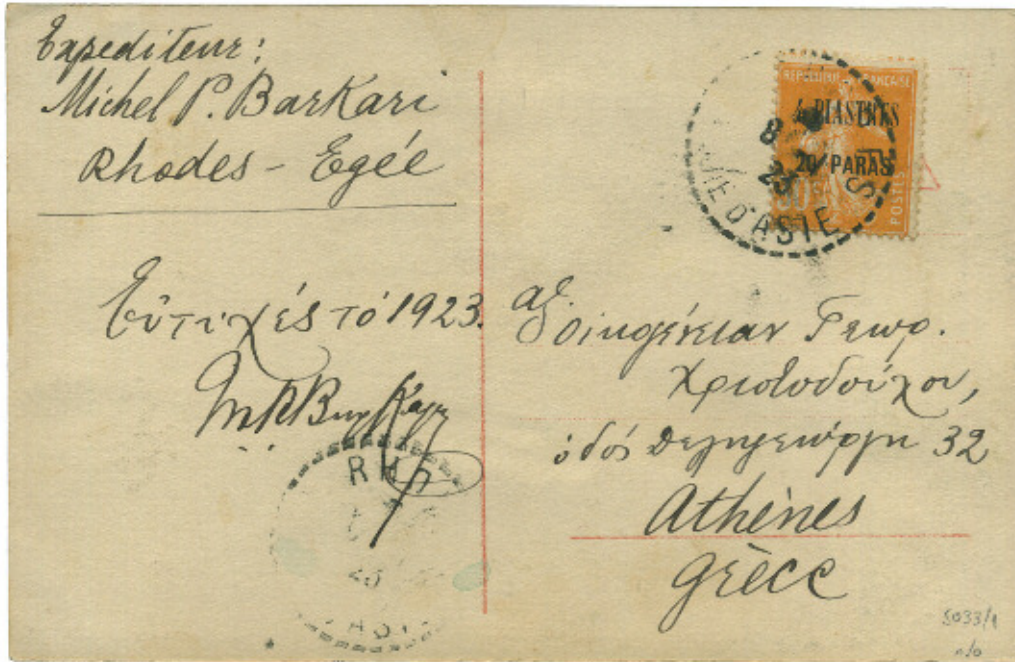 Expediteur:
Michel P. BarKari
Rhodes - Egée
Εὐτυχές τό 1923.
RH
23
ASI
RÉPUBLIQUE FRANÇAISE
4 PIASTRES
20 PARAS
POSTES
8
23
IE D'ASIE
ἀξ. οἰκογένειαν Γεωρ.
Χριστοδούλου,
ὁδός Δεληγεώργη 32
Athènes
Grèce
5033/1